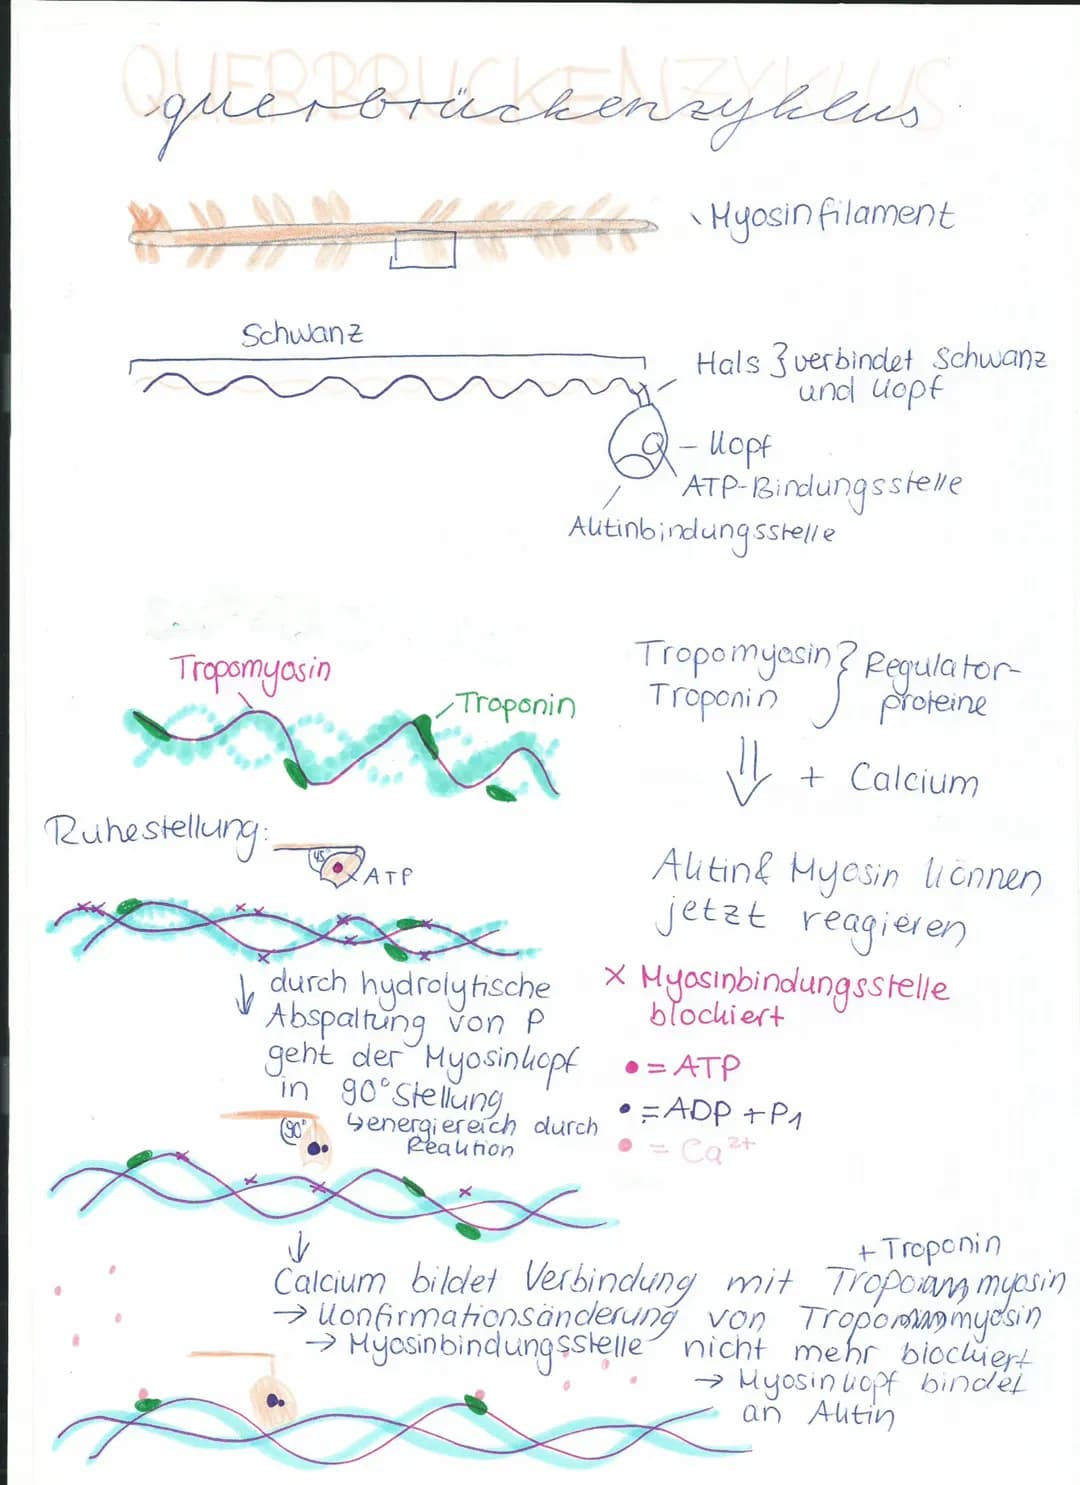 QUERBRÜCKENZYKLUS
querbrückenzyklus
Myosinfilament
Schwanz
Hals } verbindet Schwanz
und Kopf
- Kopf
ATP-Bindungsstelle
Aktinbindungsstelle
Tropomyosin
Troponin
Tropomyosin } Regulator-
Troponin proteine
⇓ + Calcium
Ruhestellung:
45°
ATP
Aktin & Myosin können
jetzt reagieren
↓ durch hydrolytische
Abspaltung von P
geht der Myosinkopf
in 90° Stellung
↳ energiereich durch
Reaktion
90°
x Myosinbindungsstelle
blockiert
• = ATP
• = ADP + P1
• = Ca²⁺
↓
+ Troponin
Calcium bildet Verbindung mit Tropomyosin
→ Konfirmationsänderung von Tropomyosin
→ Myosinbindungsstelle nicht mehr blockiert
→ Myosinkopf bindet
an Aktin